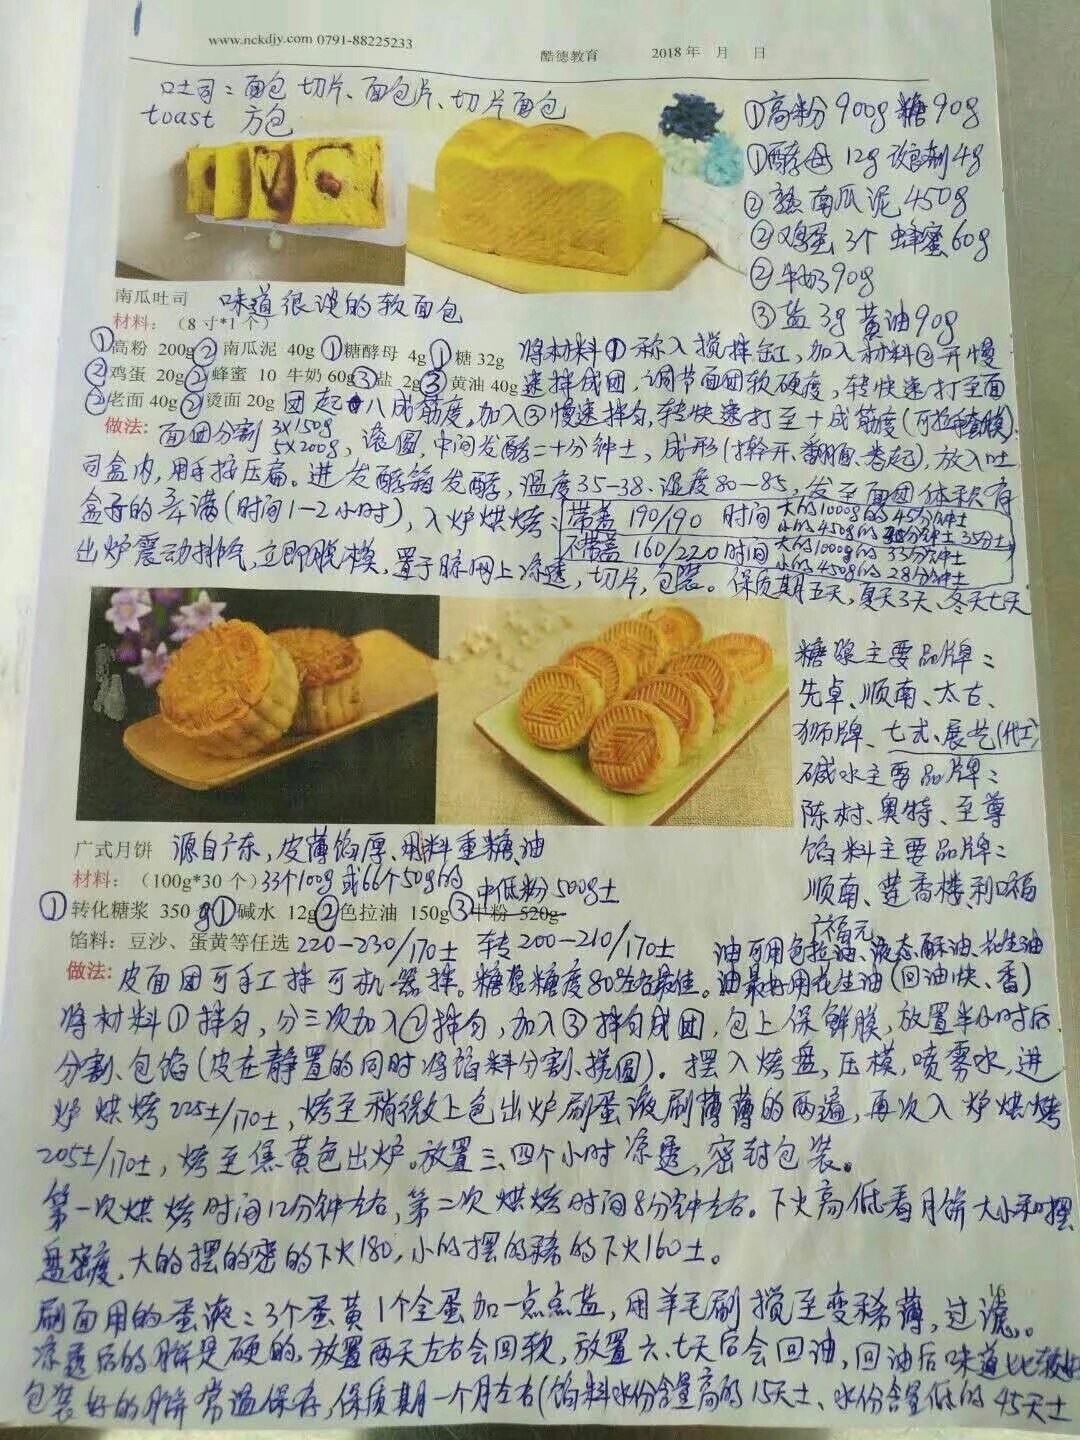 1
www.nckdjy.com 0791-88225233
酷德教育 2018 年 月 日
吐司：面包 切片、面包片、切片面包
toast 方包
①高粉 900g 糖 90g
①酵母 12g 改良剂 4g
②熟南瓜泥 450g
②鸡蛋 3个 蜂蜜 60g
②牛奶 90g
③盐 3g 黄油 90g
南瓜吐司 味道很淡的软面包
材料：（8 寸*1 个）
①高粉 200g ②南瓜泥 40g ①糖酵母 4g ①糖 32g
②鸡蛋 20g ②蜂蜜 10 牛奶 60g ③盐 2g ③黄油 40g
②老面 40g ②烫面 20g
将材料①称入搅拌缸，加入材料②开慢
速拌成团，调节面团软硬度，转快速打至面
团起八成筋度，加入③慢速拌匀，转快速打至十成筋度（可拉手套膜）
做法：面团分割 3×150g
5×200g，滚圆，中间发酵二十分钟±，成形（擀开、翻面、卷起），放入吐
司盒内，用手按压扁。进发酵箱发酵，温度35-38、湿度80-85，发至面团体积有
盒子的 满（时间1-2小时），入炉烘烤：
带盖 190/190 时间 大的1000g的 45分钟±
小的450g的 35分±
不带盖 160/220 时间 大的1000g的 33分钟±
小的450g的 28分钟±
出炉震动排气，立即脱模，置于晾网上凉透，切片，包装。保质期五天，夏天3天、冬天七天
糖浆主要品牌：
先卓、顺南、太古、
狮牌、七式、展艺（代工）
碱水主要品牌：
陈村、奥特、至尊
馅料主要品牌：
顺南、莲香楼、利口福
广福元
广式月饼 源自广东，皮薄馅厚、用料重糖、油
材料：（100g*30 个）33个100g 或66个50g的
中低粉500g±
①转化糖浆 350 g ①碱水 12g ②色拉油 150g ③中粉 520g
馅料：豆沙、蛋黄等任选 220-230/170± 转 200-210/170±
油可用色拉油、液态酥油、花生油
做法：皮面团可手工拌 可机器拌。糖浆糖度80%左右最佳。油最好用花生油（回油快、香）
将材料①拌匀，分三次加入②拌匀，加入③拌匀成团，包上保鲜膜，放置半小时后
分割、包馅（皮在静置的同时将馅料分割、搓圆）。摆入烤盘，压模，喷雾水，进
炉烘烤225±/170±，烤至稍微上色出炉刷蛋液刷薄薄的两遍，再次入炉烘烤
205±/170±，烤至焦黄色出炉。放置三、四个小时凉透，密封包装。
第一次烘烤时间12分钟左右，第二次烘烤时间8分钟左右。下火高低看月饼大小和摆
盘密度，大的摆的密的下火180，小的摆的稀的下火160±。
刷面用的蛋液：3个蛋黄1个全蛋加一点点盐，用羊毛刷搅至变稀薄，过滤。
凉透后的月饼是硬的，放置两天左右会回软，放置六、七天后会回油，回油后味道比较好
包装好的月饼常温保存，保质期一个月左右（馅料水份含量高的15天±、水份含量低的45天±